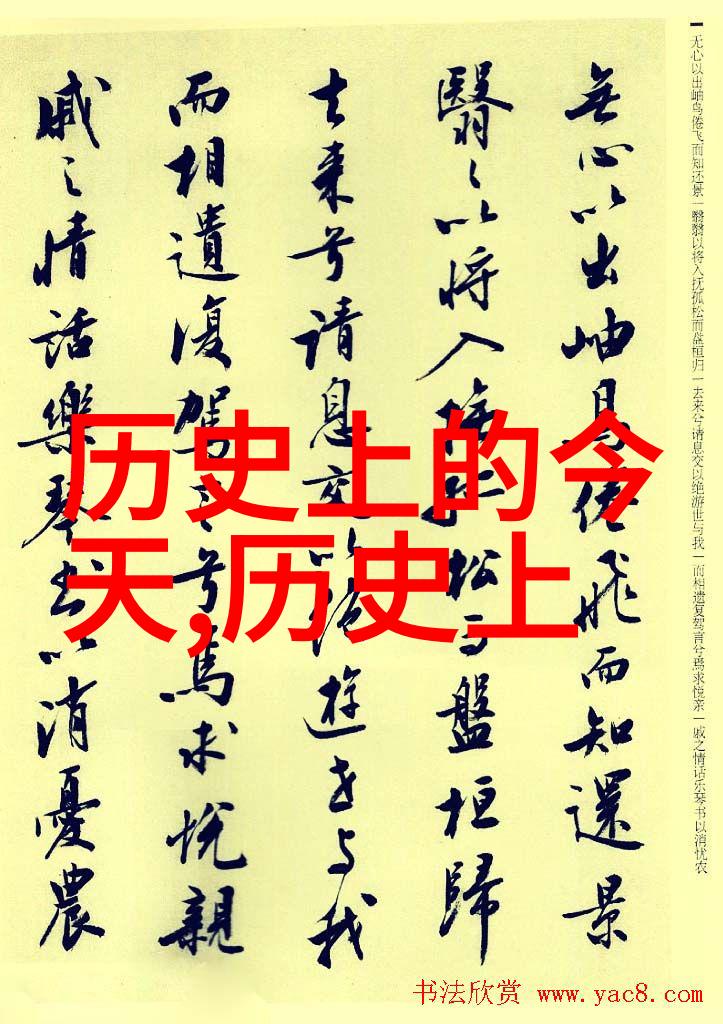 无心以出岫鸟倦飞而知还景一翳翳以将入抚孤松而盘桓归一去来兮请息交以绝游世与我一而相遗复驾言兮焉求悦亲一戚之情话乐琴书以消忧农
無心以出岫鳥倦飛而知還景
翳々以將入撫孤松而盤桓歸
去來兮請息交以絕遊世与我
而相遺復駕言兮焉求悅親
戚之情話樂琴書以消憂農
历史上的今
天,历史上
书法欣赏 www.yac8.com